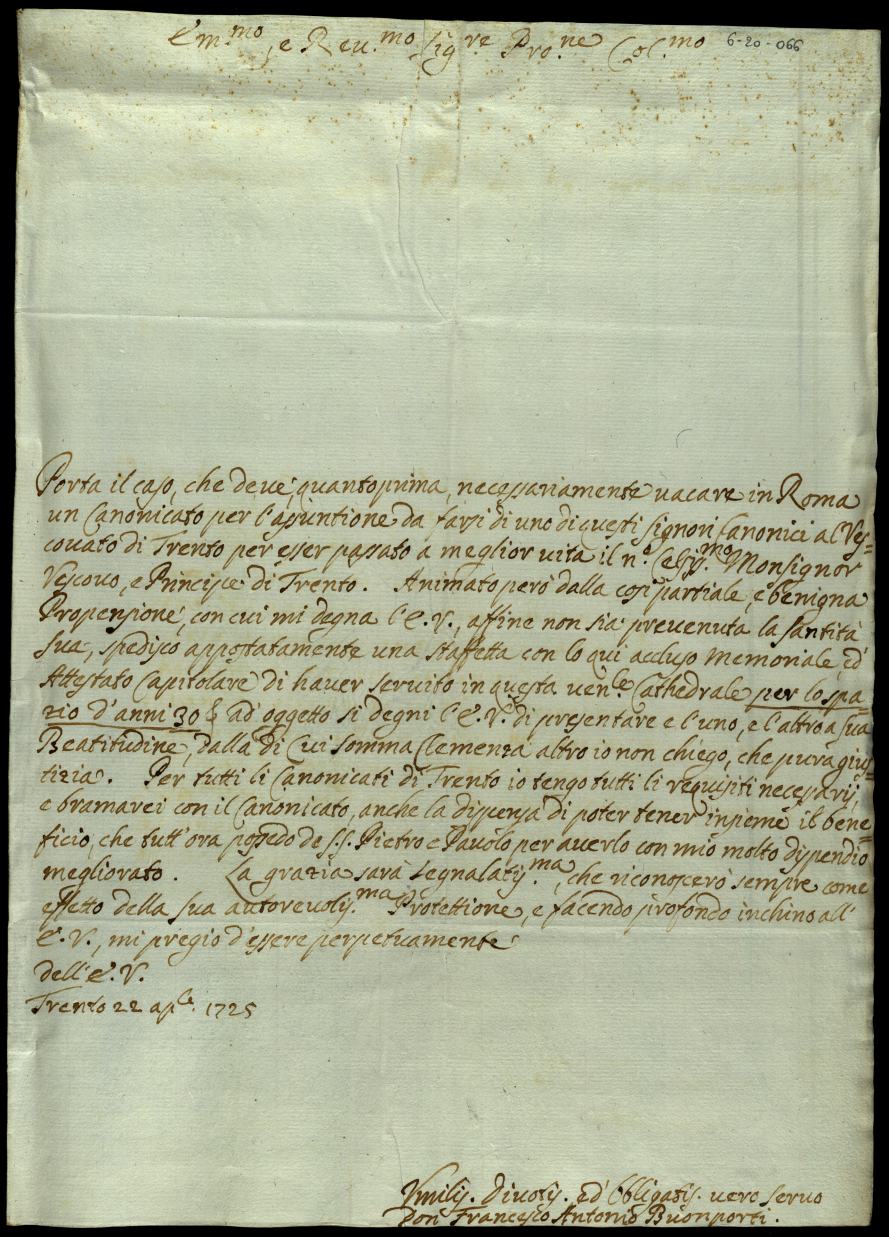 Em.mo, e Reu.mo Sig.re Pro.ne Col.mo 6-20-066
Porta il caso, che deue, quantoprima, necessariamente uacare in Roma
un Canonicato per l'assuntione da farsi di uno di cuesti Signori Canonici al Ves=
couato di Trento per esser passato a meglior uita il n.o Cels.mo Monsignor
Vescouo, e Principe di Trento. Animato però dalla cosi partiale, e benigna
Propensione, con cui mi degna l'E.V., affine non sia preuenuta la Santità
Sua, spedisco appostatamente una staffetta con lo qui accluso Memoriale, ed
Attestato Capitolare di hauer seruito in questa uen.le Cathedrale per lo spa
zio d'anni 30 ad' oggetto si degni l'E.V. di presentare e l'uno, e l'altro a sua
Beatitudine, dalla di Cui somma Clemenza altro io non chiego, che pura gius=
tizia. Per tutti li Canonicati di Trento io tengo tutti li requisiti necessarij,
e bramarei con il Canonicato, anche la dispensa di poter tener insieme il bene=
ficio, che tutt'ora possedo de S.S. Pietro e Pauolo per auerlo con mio molto dispendio
megliorato. La grazia sarà segnalatis.ma, che riconoscerò sempre come
effetto della sua autoreuolis.ma Protettione, e facendo profondo inchino all'
E.V., mi pregio d'essere perpetuamente
dell'E.V.
Trento 22 ap.le 1725
Vmilis. Diuotis. ed' Obbligatis. uero seruo
Don Francesco Antonio Buonporti.